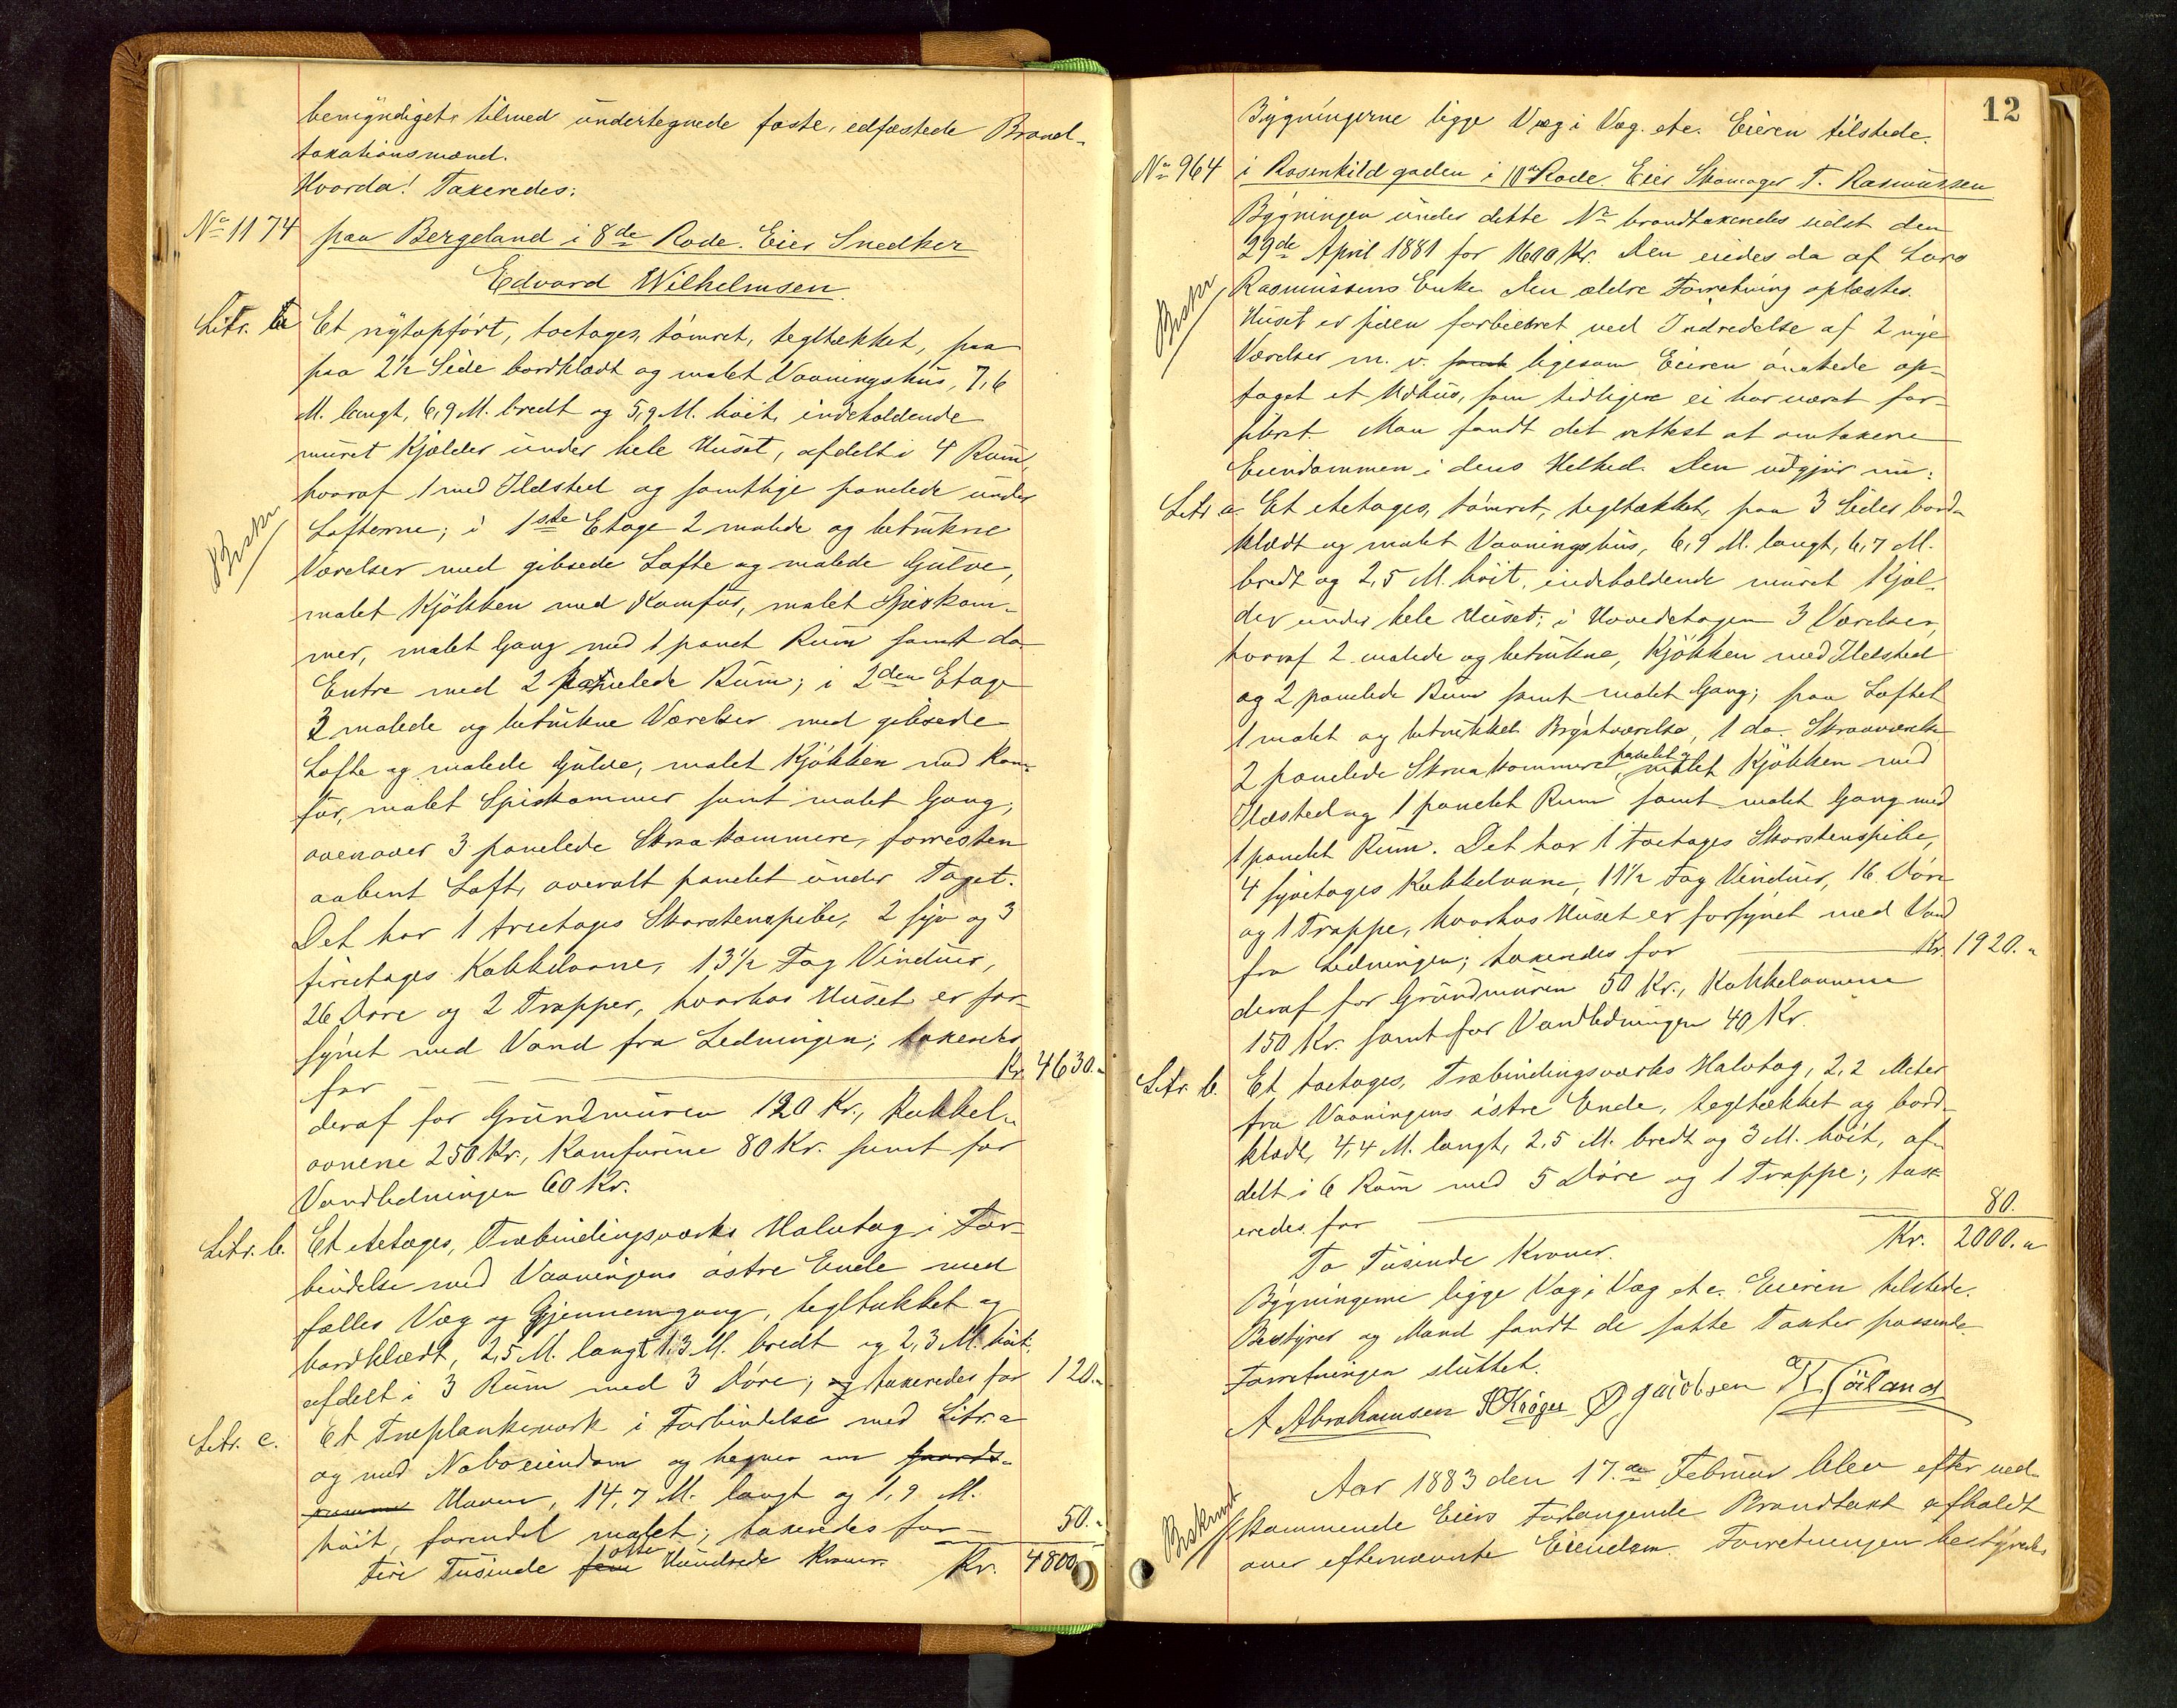 bemyndiget, tilmed undertegnede faste, edfæstede Brand-
taxationsmænd.
Hvorda! Taxeredes:
No 1174 paa Bergeland i 8de Rode. Eier Snedker
Edvard Wilhelmsen.
Litr. a Et nytopført, toetages, tømret, tegltækket, paa
paa 2½ Side bordklædt og malet Vaaningshus, 7,6
M. langt, 6,9 M. bredt og 5,9 M. høit, indeholdende
muret Kjælder under hele Huset, afdelt i 4 Rum,
hvoraf 1 med Ildsted og samtlige panelede under
Lofterne; i 1ste Etage 2 malede og betrukne
Værelser med gibsede Lofte og malede Gulve,
malet Kjøkken med Komfur, malet Spiskam-
mer, malet Gang med 1 panet Rum samt do
Entre med 2 panelede Rum; i 2den Etage
3 malede og betrukne Værelser med gibsede
Lofte og malede Gulve, malet Kjøkken med Kom-
fur, malet Spiskammer samt malet Gang;
ovenover 3 panelede Skraakammere, forresten
aabent Loft, overalt panelet under Taget.
Det har 1 treetages Skorstenspibe, 2 syv og 3
fireetages Kakkelovne, 13½ Fag Vinduer,
26 Døre og 2 Trapper, hvorhos Huset er for-
synet med Vand fra Ledningen; taxeredes
for Kr. 4630.-
deraf for Grundmuren 120 Kr., Kakkel-
ovnene 250 Kr., Komfurene 80 Kr. samt for
Vandledningen 60 Kr.
Litr. b. Et etetages, Træbindingsværks Halvtag i For-
bindelse med Vaaningens østre Ende med
fælles Væg og Gjennemgang, tegltækket og
bordklædt, 2,5 M. langt 1,3 M. bredt og 2,3 M. høit,
afdelt i 3 Rum med 3 Døre; og taxeredes for 120.-
Litr. c. Et Træplankeværk i Forbindelse med Litr. a
og med Naboeiendom og hegner om Gaards-
rummet Haven, 14,7 M. langt og 1,9 M.
høit, forendel malet; taxeredes for 50.-
Fire Tusinde fem otte Hundrede Kroner. Kr. 4800
Beskr
12
Bygningerne ligge Væg i Væg. etc. Eieren tilstede.
No 964 i Rosenkildgaden i 11te Rode. Eier Skomager T. Rasmussen
Bygningen under dette No brandtaxeredes sidst den
29de April 1881 for 1600 Kr. Den eiedes da af Lars
Rasmussens Enke. Den ældre Forretning oplæstes.
Huset er siden forbedret ved Indredelse af 2 nye
Værelser m. v. samt ligesom Eieren ønskede op-
taget et Udhus, som tidligere ei har været for-
sikret. Man fandt det rettest at omtaxere
Eiendommen i dens Helhed. Den udgjør nu:
Litr a. Et etetages, tømret, tegltækket, paa 3 Sider bord-
klædt og malet Vaaningshus, 6,9 M. langt, 6,7 M.
bredt og 2,5 M. høit, indeholdende muret Kjæl-
der under hele Huset; i Hovedetagen 3 Værelser,
hvoraf 2 malede og betrukne, Kjøkken med Ildsted
og 2 panelede Rum samt malet Gang; paa Loftet
1 malet og betrukket Brystværelse, 1 do. Skraaværelse
2 panelede Skraakammere, panelet og malet Kjøkken med
Ildsted og 1 panelet Rum samt malet Gang med
1 panelet Rum. Det har 1 toetages Skorstenspibe,
4 syvetages Kakkelovne, 11½ Fag Vinduer, 16 Døre
og 1 Trappe, hvorhos Huset er forsynet med Vand
fra Ledningen; taxeredes for Kr. 1920.-
deraf for Grundmuren 50 Kr., Kakkelovnene
150 Kr. samt for Vandledningen 40 Kr.
Litr. b. Et toetages, Træbindingsværks Halvtag, 2,2 Meter
fra Vaaningens østre Ende, tegltækket og bord-
klædt, 4,4 M. langt, 2,5 M. bredt og 3 M. høit, af-
delt i 6 Rum med 5 Døre og 1 Trappe; tax-
eredes for 80.
To Tusinde Kroner. Kr. 2000.-
Bygningerne ligge Væg i Væg etc. Eieren tilstede.
Bestyrer og Mænd fandt de satte Taxter passende
Forretningen sluttet.
A Abrahamsen Krøger Ø Jacobsen
Aar 1883 den 17.de Februar blev efter ved-
kommende Eiers Forlangende Brandtaxt afholdt
over efternævnte Eiendom. Forretningen bestyredes
Beskr
Beskrevet